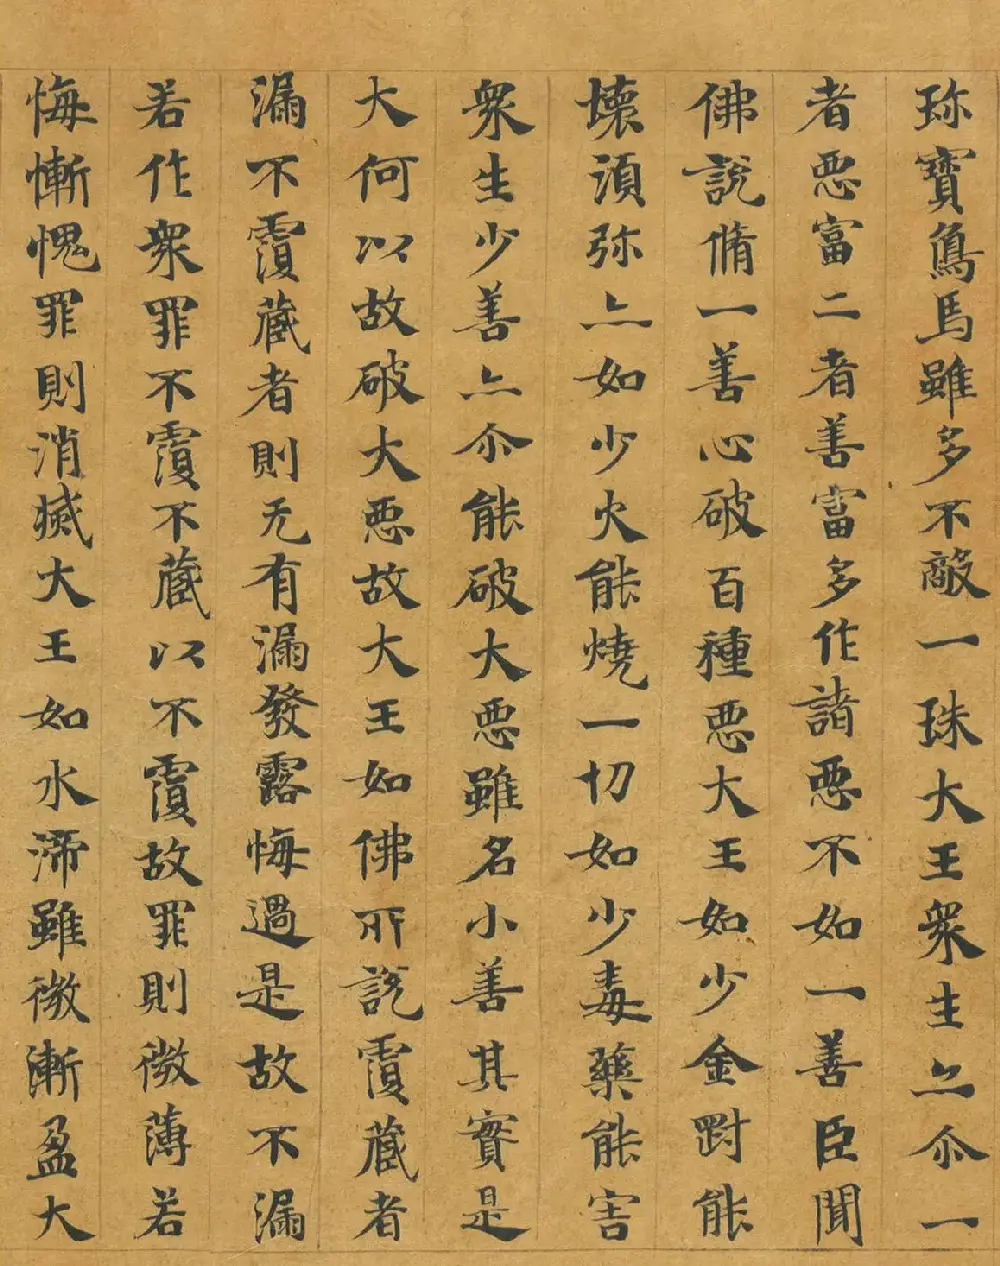 珎寶象馬雖多不敵一珠大王衆生亦尒一
者惡富二者善富多作諸惡不如一善臣聞
佛說脩一善心破百種惡大王如少金剛能
壞須弥亦如少火能燒一切如少毒藥能害
衆生少善亦尒能破大惡雖名小善其實是
大何以故破大惡故大王如佛所說覆藏者
漏不覆藏者則无有漏發露悔過是故不漏
若作衆罪不覆不藏以不覆故罪則微薄若
悔慚愧罪則消滅大王如水渧雖微漸盈大